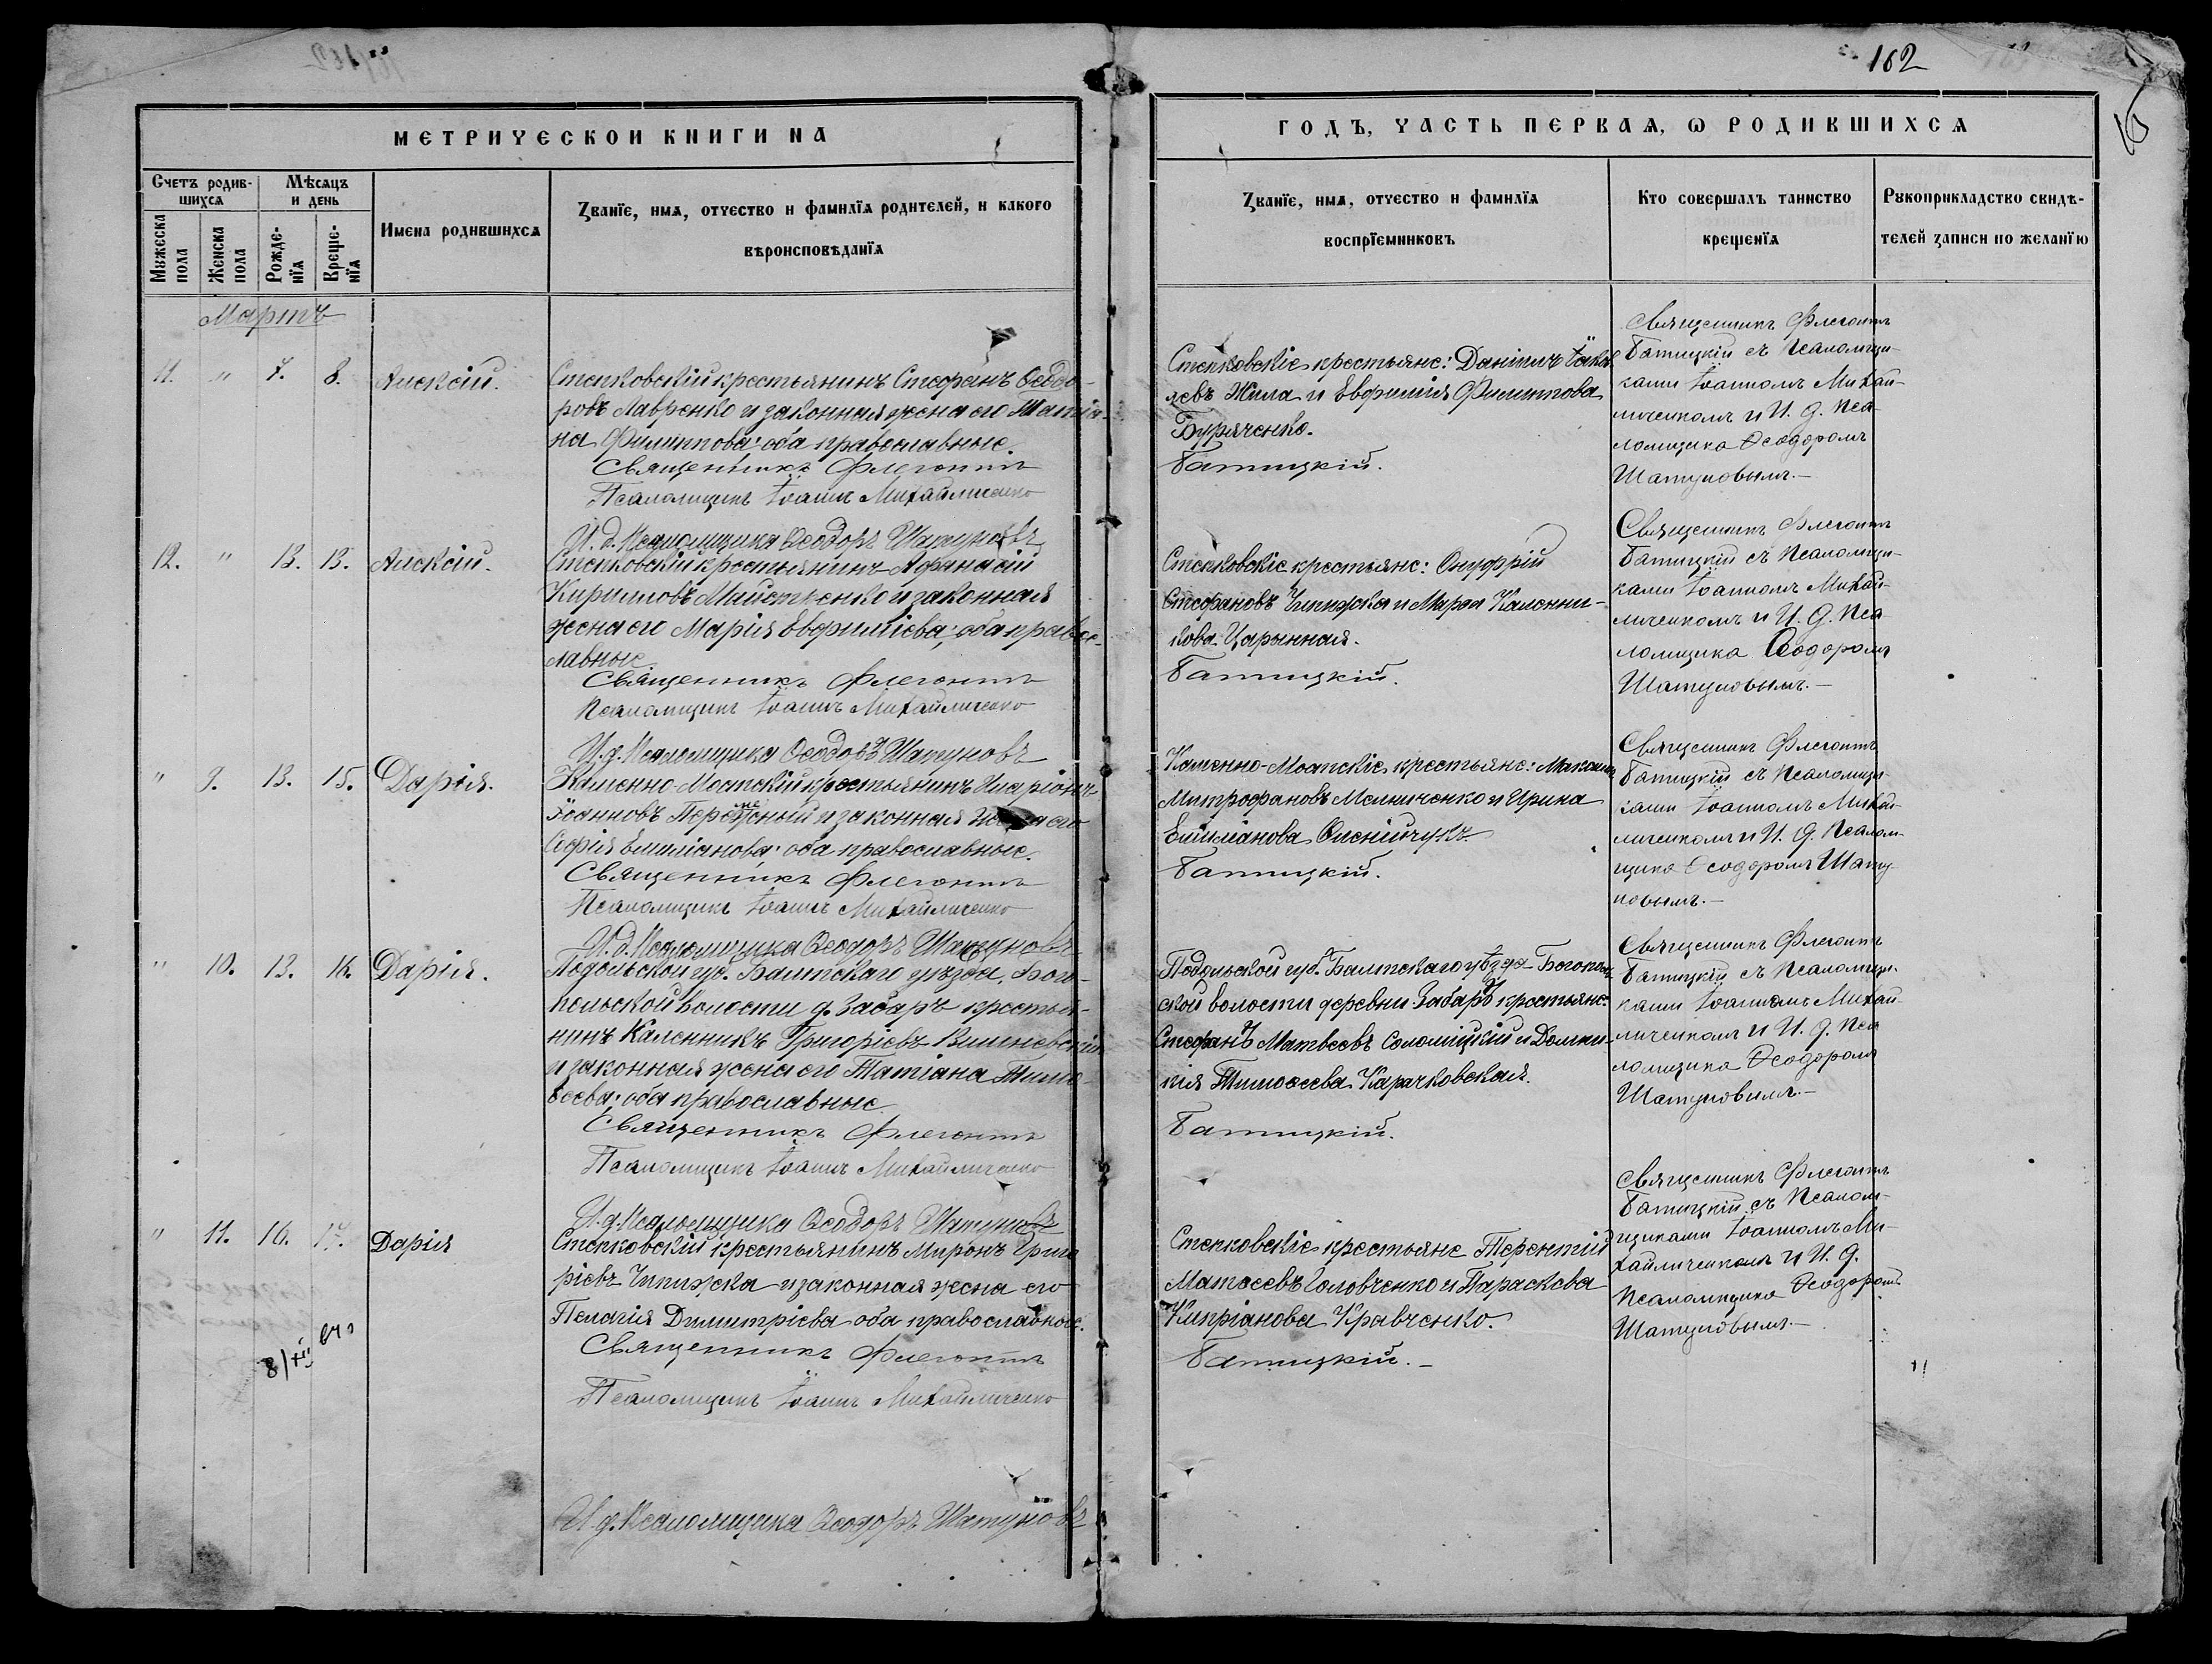 102
16
МЕТРИЧЕСКОИ КНИГИ НА
ГОДЪ, ЧАСТЬ ПЕРВАЯ, Ѡ РОДИВШИХСЯ
Счетъ родив-
шихся
Мѣсяцъ
и день
Мужеска
пола
Женска
пола
Рожде-
нїя
Креще-
нїя
Имена родившихся
Званїе, имя, отчество и фамилїя родителей, и какого
вѣроисповѣданїя
Званїе, имя, отчество и фамилїя
воспрїемниковъ
Кто совершалъ таинство
крещенїя
Рукоприкладство свидѣ-
телей записи по желанїю
Мартъ
11. " 7. 8. Алексій.
Степковскій крестьянинъ Стефанъ Ѳеодо-
ровъ Лавренко и законная жена его Татіа-
на Филиппова; оба православные.
Священникъ Флегонтъ
Псаломщикъ Іоаннъ Михайличенко
И. д. Псаломщика Ѳеодоръ Шатуновъ
Степковскіе крестьяне: Даніилъ Іаков
левъ Жила и Евфимія Филиппова
Буряченко.
Батицкій.
Священникъ Флегонтъ
Батицкій съ Псаломщи-
ками Іоанномъ Михай-
личенкомъ и И. д. Пса-
ломщика Ѳеодоромъ
Шатуновымъ.—
12. " 13. 15. Алексій.
Степковскій крестьянинъ Афанасій
Кирилловъ Майстренко и законная
жена его Марія Евфиміева; оба правос-
лавные.
Священникъ Флегонтъ
Псаломщикъ Іоаннъ Михайличенко
И. д. Псаломщика Ѳеодоръ Шатуновъ
Степковскіе крестьяне: Онуфрій
Стефановъ Чипижка и Марфа Каленни-
кова Царынная.
Батицкій.
Священникъ Флегонтъ
Батицкій съ Псаломщи-
ками Іоанномъ Михай-
личенкомъ и И. д. Пса-
ломщика Ѳеодоромъ
Шатуновымъ.—
" 9. 13. 15. Дарія.
Каменно-Мостскій крестьянинъ Иларіонъ
Іоанновъ и законная его
Софія Емиліанова; оба православные.
Священникъ Флегонтъ
Псаломщикъ Іоаннъ Михайличенко
И. д. Псаломщика Ѳеодоръ Шатуновъ
Каменно-Мостскіе крестьяне: Максимъ
Митрофановъ Мельниченко и Ирина
Емиліанова Олснійчукъ.
Батицкій.
Священникъ Флегонтъ
Батицкій съ Псаломщи-
ками Іоанномъ Михай-
личенкомъ и И. д. Псалом-
щика Ѳеодоромъ Шату-
новымъ.—
" 10. 13. 16. Дарія.
Подольской губ. Балтскаго уѣзда, Бого-
польской волости д. Забаръ крестья-
нинъ Каленникъ Григоріевъ Вишневскій
и законная жена его Татіана Тимо-
ѳеева; оба православные
Священникъ Флегонтъ
Псаломщикъ Іоаннъ Михайличенко
И. д. Псаломщика Ѳеодоръ Шатуновъ
Подольской губ. Балтскаго уѣзда Богополь
ской волости деревни Забаръ крестьяне:
Стефанъ Матвеевъ Соломіцкій и Домни-
кія Тимоѳеева Карачковская.
Батицкій.
Священникъ Флегонтъ
Батицкій съ Псаломщи-
ками Іоанномъ Михай-
личенкомъ и И. д. Пса
ломщика Ѳеодоромъ
Шатуновымъ.—
" 11. 16. 17. Дарія
Степковскій крестьянинъ Миронъ Григо
ріевъ Чипижка и законная жена его
Пелагія Димитріева оба православные.
Священникъ Флегонтъ
Псаломщикъ Іоаннъ Михайличенко
И. д. Псаломщика Ѳеодоръ Шатуновъ
Степковскіе крестьяне Терентій
Матѳеевъ Головченко и Параскева
Кипріанова Кравченко.
Батицкій.—
Священникъ Флегонтъ
Батицкій съ Псалом-
щиками Іоанномъ Ми-
хайличенкомъ и И. д.
Псаломщика Ѳеодоромъ
Шатуновымъ.—